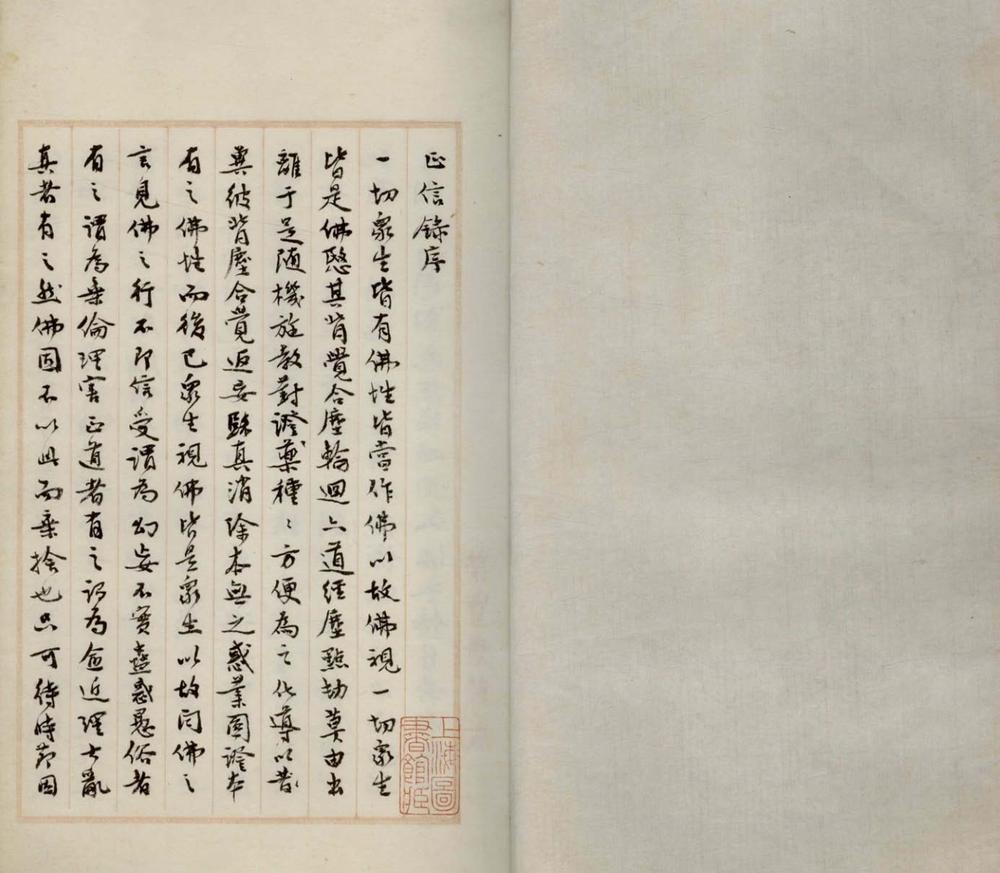 正信錄序
一切衆生皆有佛性皆當作佛以故佛視一切衆生
皆是佛愍其背覺合塵輪迴六道經塵點劫莫由出
離于是隨機施教對證藥種〻方便為之化導以故
冀彼背塵合覺返妄歸真消除本無之惑業圓證本
有之佛性而後已衆生視佛皆是衆生以故聞佛之
言見佛之行不即信受謂為幻妄不實蠱惑愚俗者
有之謂為棄倫理害正道者有之謂為愈近理大亂
真者有之然佛固不以此而棄捨也只可待時節因
上海圖書館藏